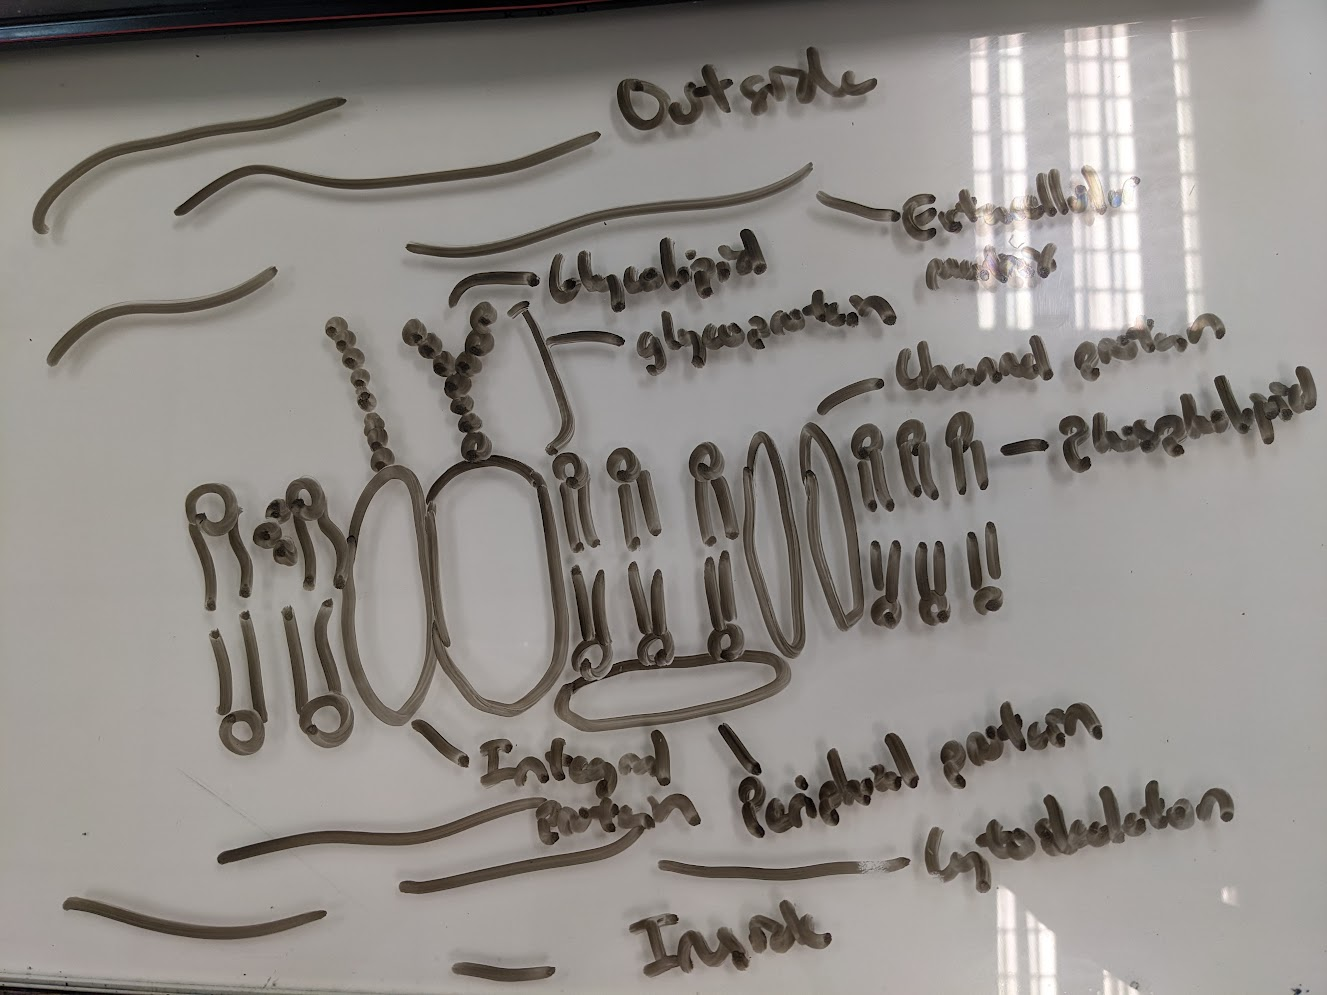 Outside
Extracellular
matrix
Glycolipid
glycoprotein
Channel protein
Phospholipid
Integral
protein
Peripheral protein
Cytoskeleton
Inside